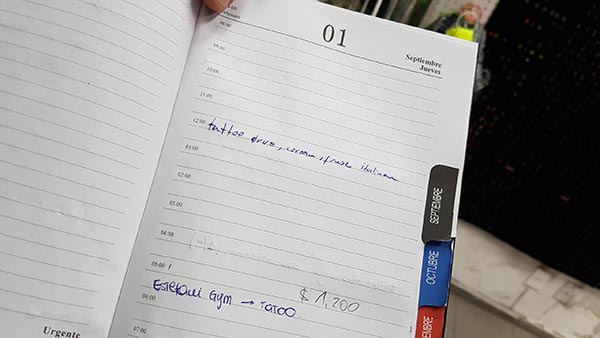 01
Septiembre
Jueves
08:00
09:00
10:00
11:00
12:00
tattoo cruz, corazon, frase italiana
01:00
02:00
03:00
04:00
05:00
$ 1,200
Estefani Gym → Tatoo
06:00
07:00
Urgente
SEPTIEMBRE
OCTUBRE